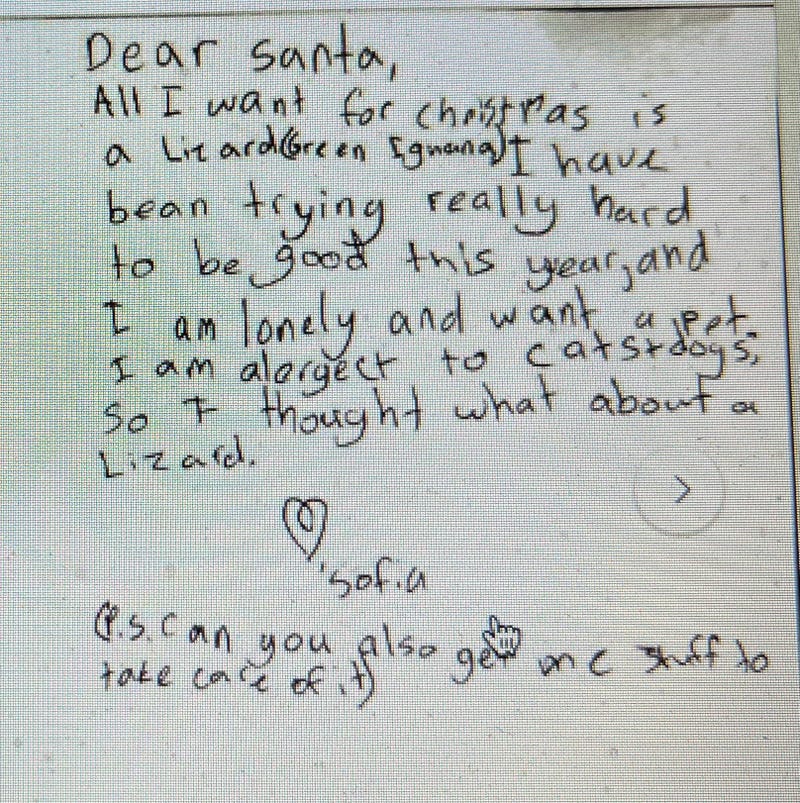 Dear santa,
All I want for christmas is
a Lizard(Green Iguana) I have
bean trying really hard
to be good this year, and
I am lonely and want a pet.
I am alargect to cats+dogs,
so I thought what about a
Lizard.
sofia
(P.S. Can you also get me stuff to
take care of it)